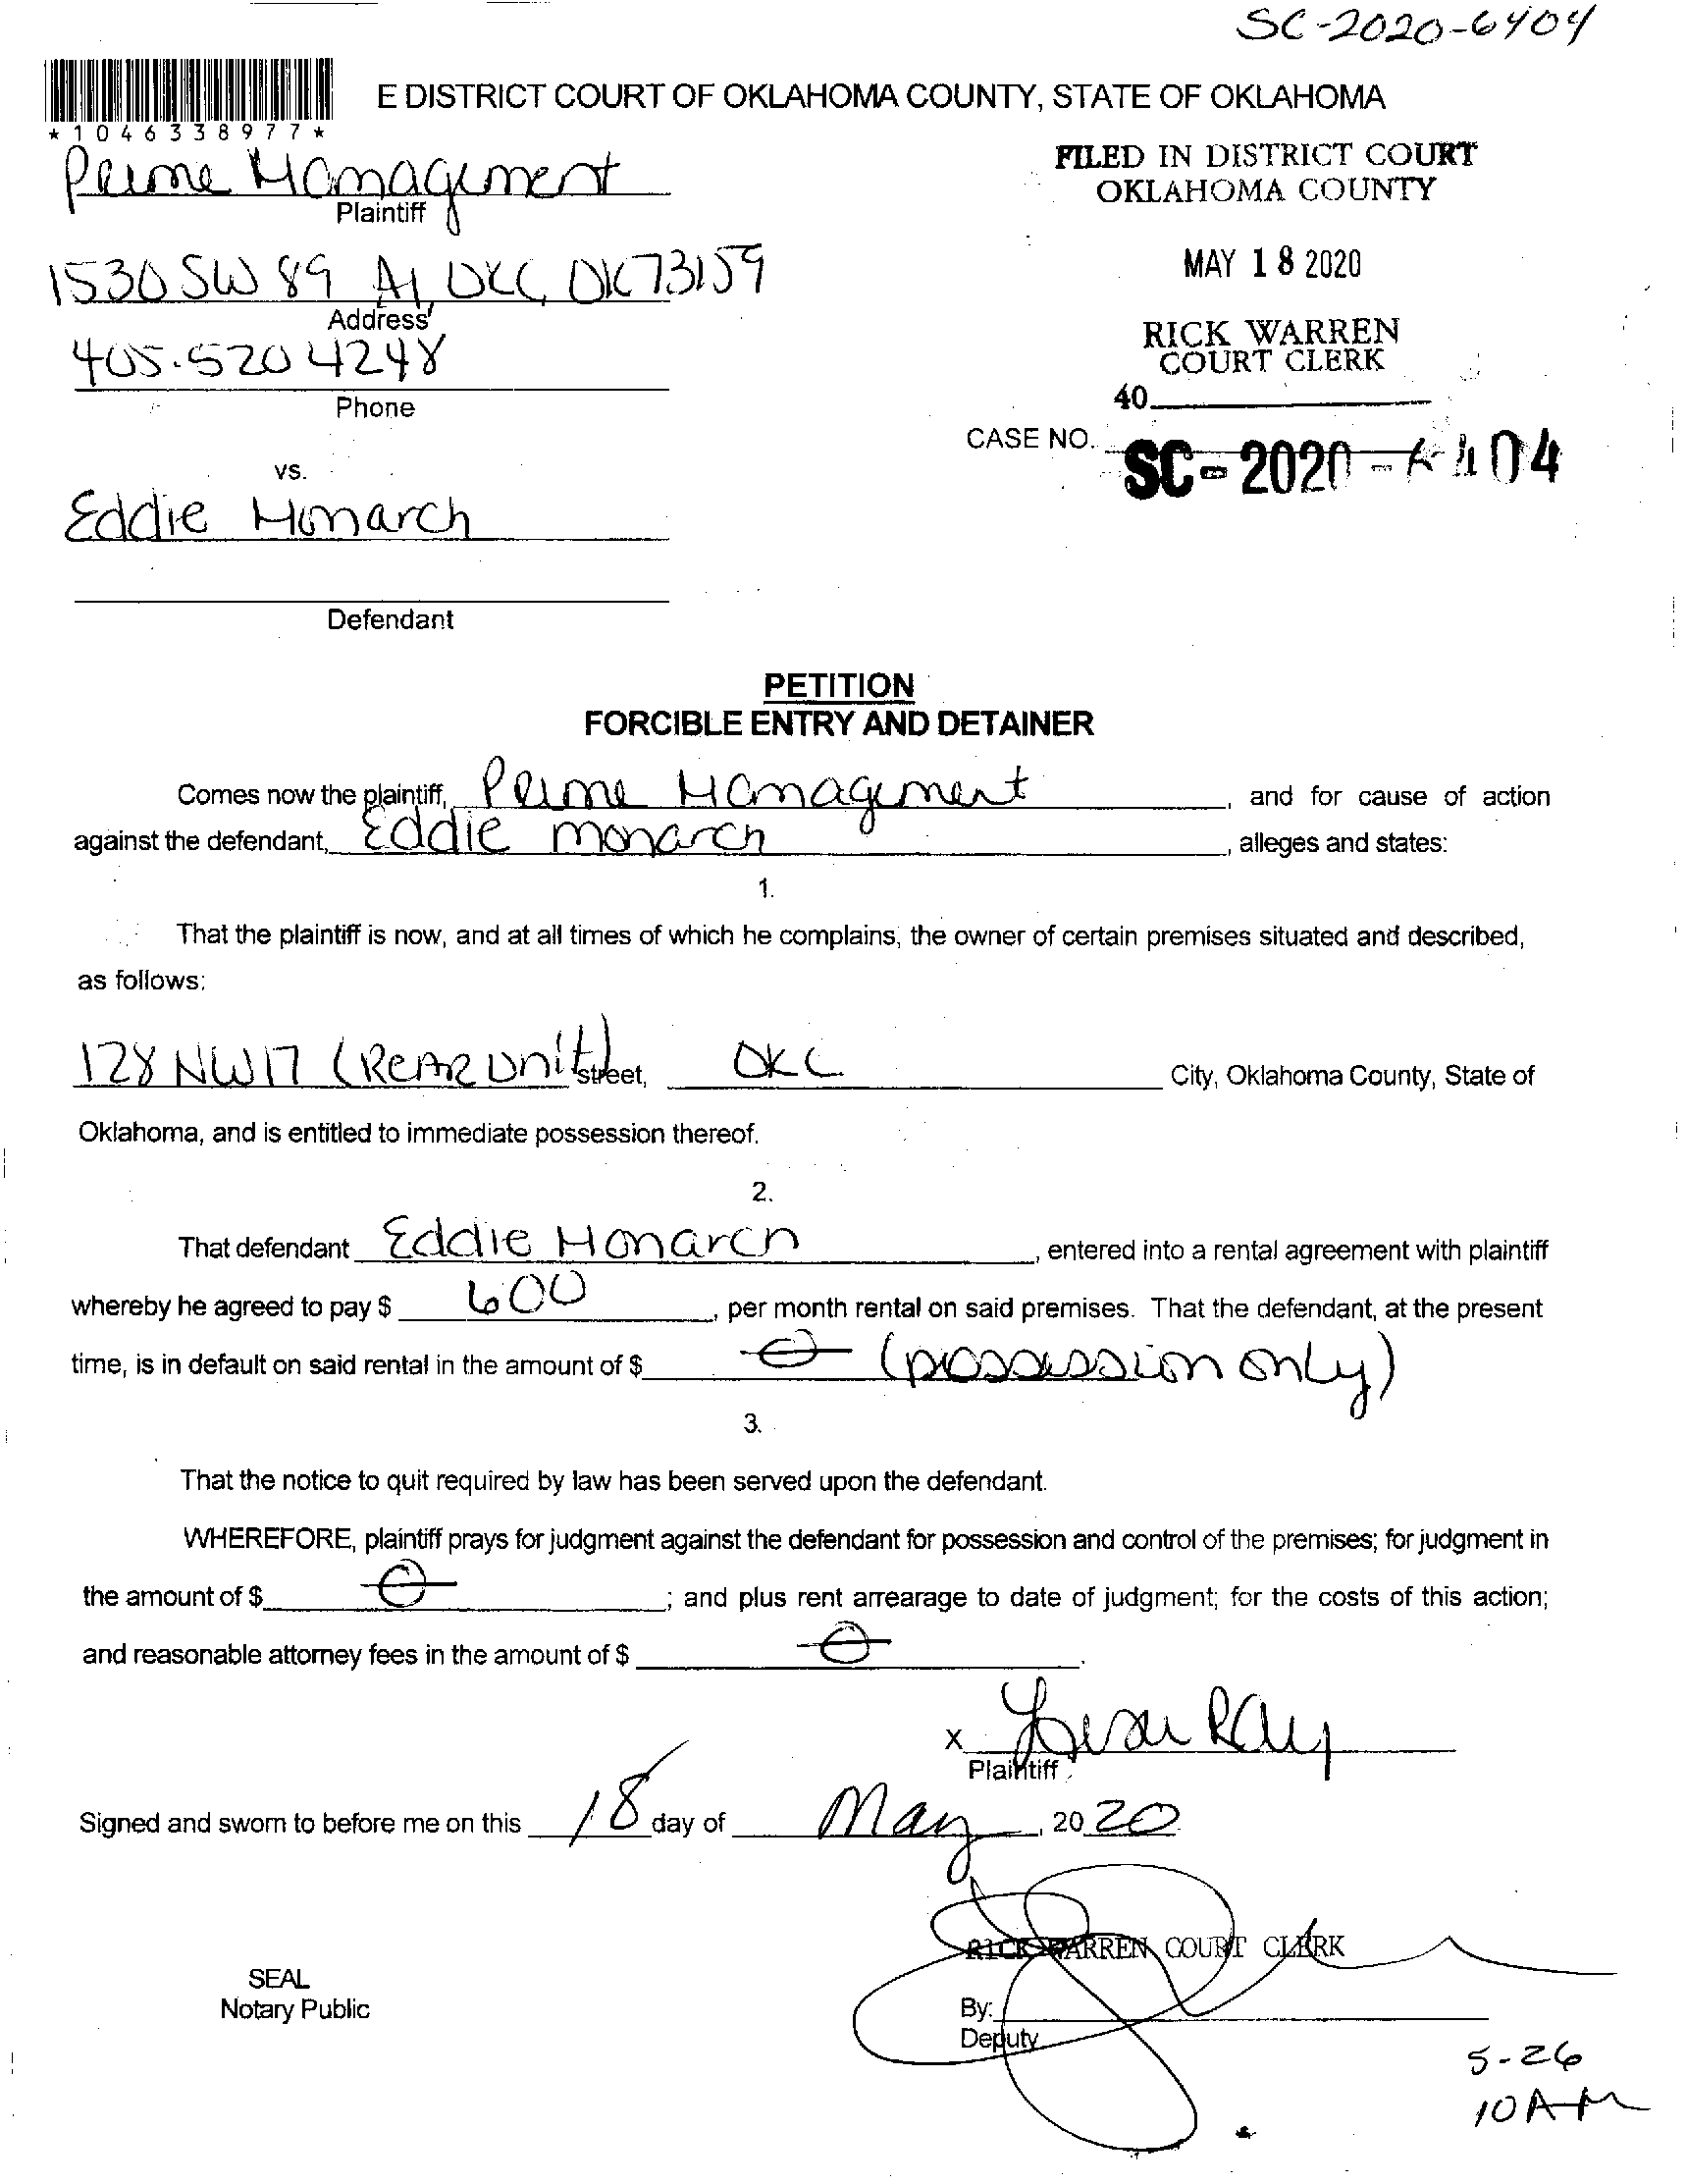 SC-2020-6404
E DISTRICT COURT OF OKLAHOMA COUNTY, STATE OF OKLAHOMA
*1046338977*
Prime Management
Plaintiff
FILED IN DISTRICT COURT
OKLAHOMA COUNTY
1530 SW 89 A1, OKC, OK 73159
Address
MAY 18 2020
405.520 4248
Phone
RICK WARREN
COURT CLERK
40
CASE NO. SC-2020-6404
vs.
Eddie Monarch
Defendant
PETITION
FORCIBLE ENTRY AND DETAINER
Comes now the plaintiff, Prime Management, and for cause of action
against the defendant, Eddie Monarch, alleges and states:
1.
That the plaintiff is now, and at all times of which he complains, the owner of certain premises situated and described,
as follows:
128 NW 17 (Rear Unit) street, OKC City, Oklahoma County, State of
Oklahoma, and is entitled to immediate possession thereof.
2.
That defendant Eddie Monarch, entered into a rental agreement with plaintiff
whereby he agreed to pay $ 600, per month rental on said premises. That the defendant, at the present
time, is in default on said rental in the amount of $ 0 (possession only)
3.
That the notice to quit required by law has been served upon the defendant.
WHEREFORE, plaintiff prays for judgment against the defendant for possession and control of the premises; for judgment in
the amount of $ 0; and plus rent arrearage to date of judgment; for the costs of this action;
and reasonable attorney fees in the amount of $ 0.
X Lisa Ray
Plaintiff
Signed and sworn to before me on this 18 day of May, 2020
RICK WARREN COURT CLERK
SEAL
Notary Public
By:
Deputy
5-26
10 AM